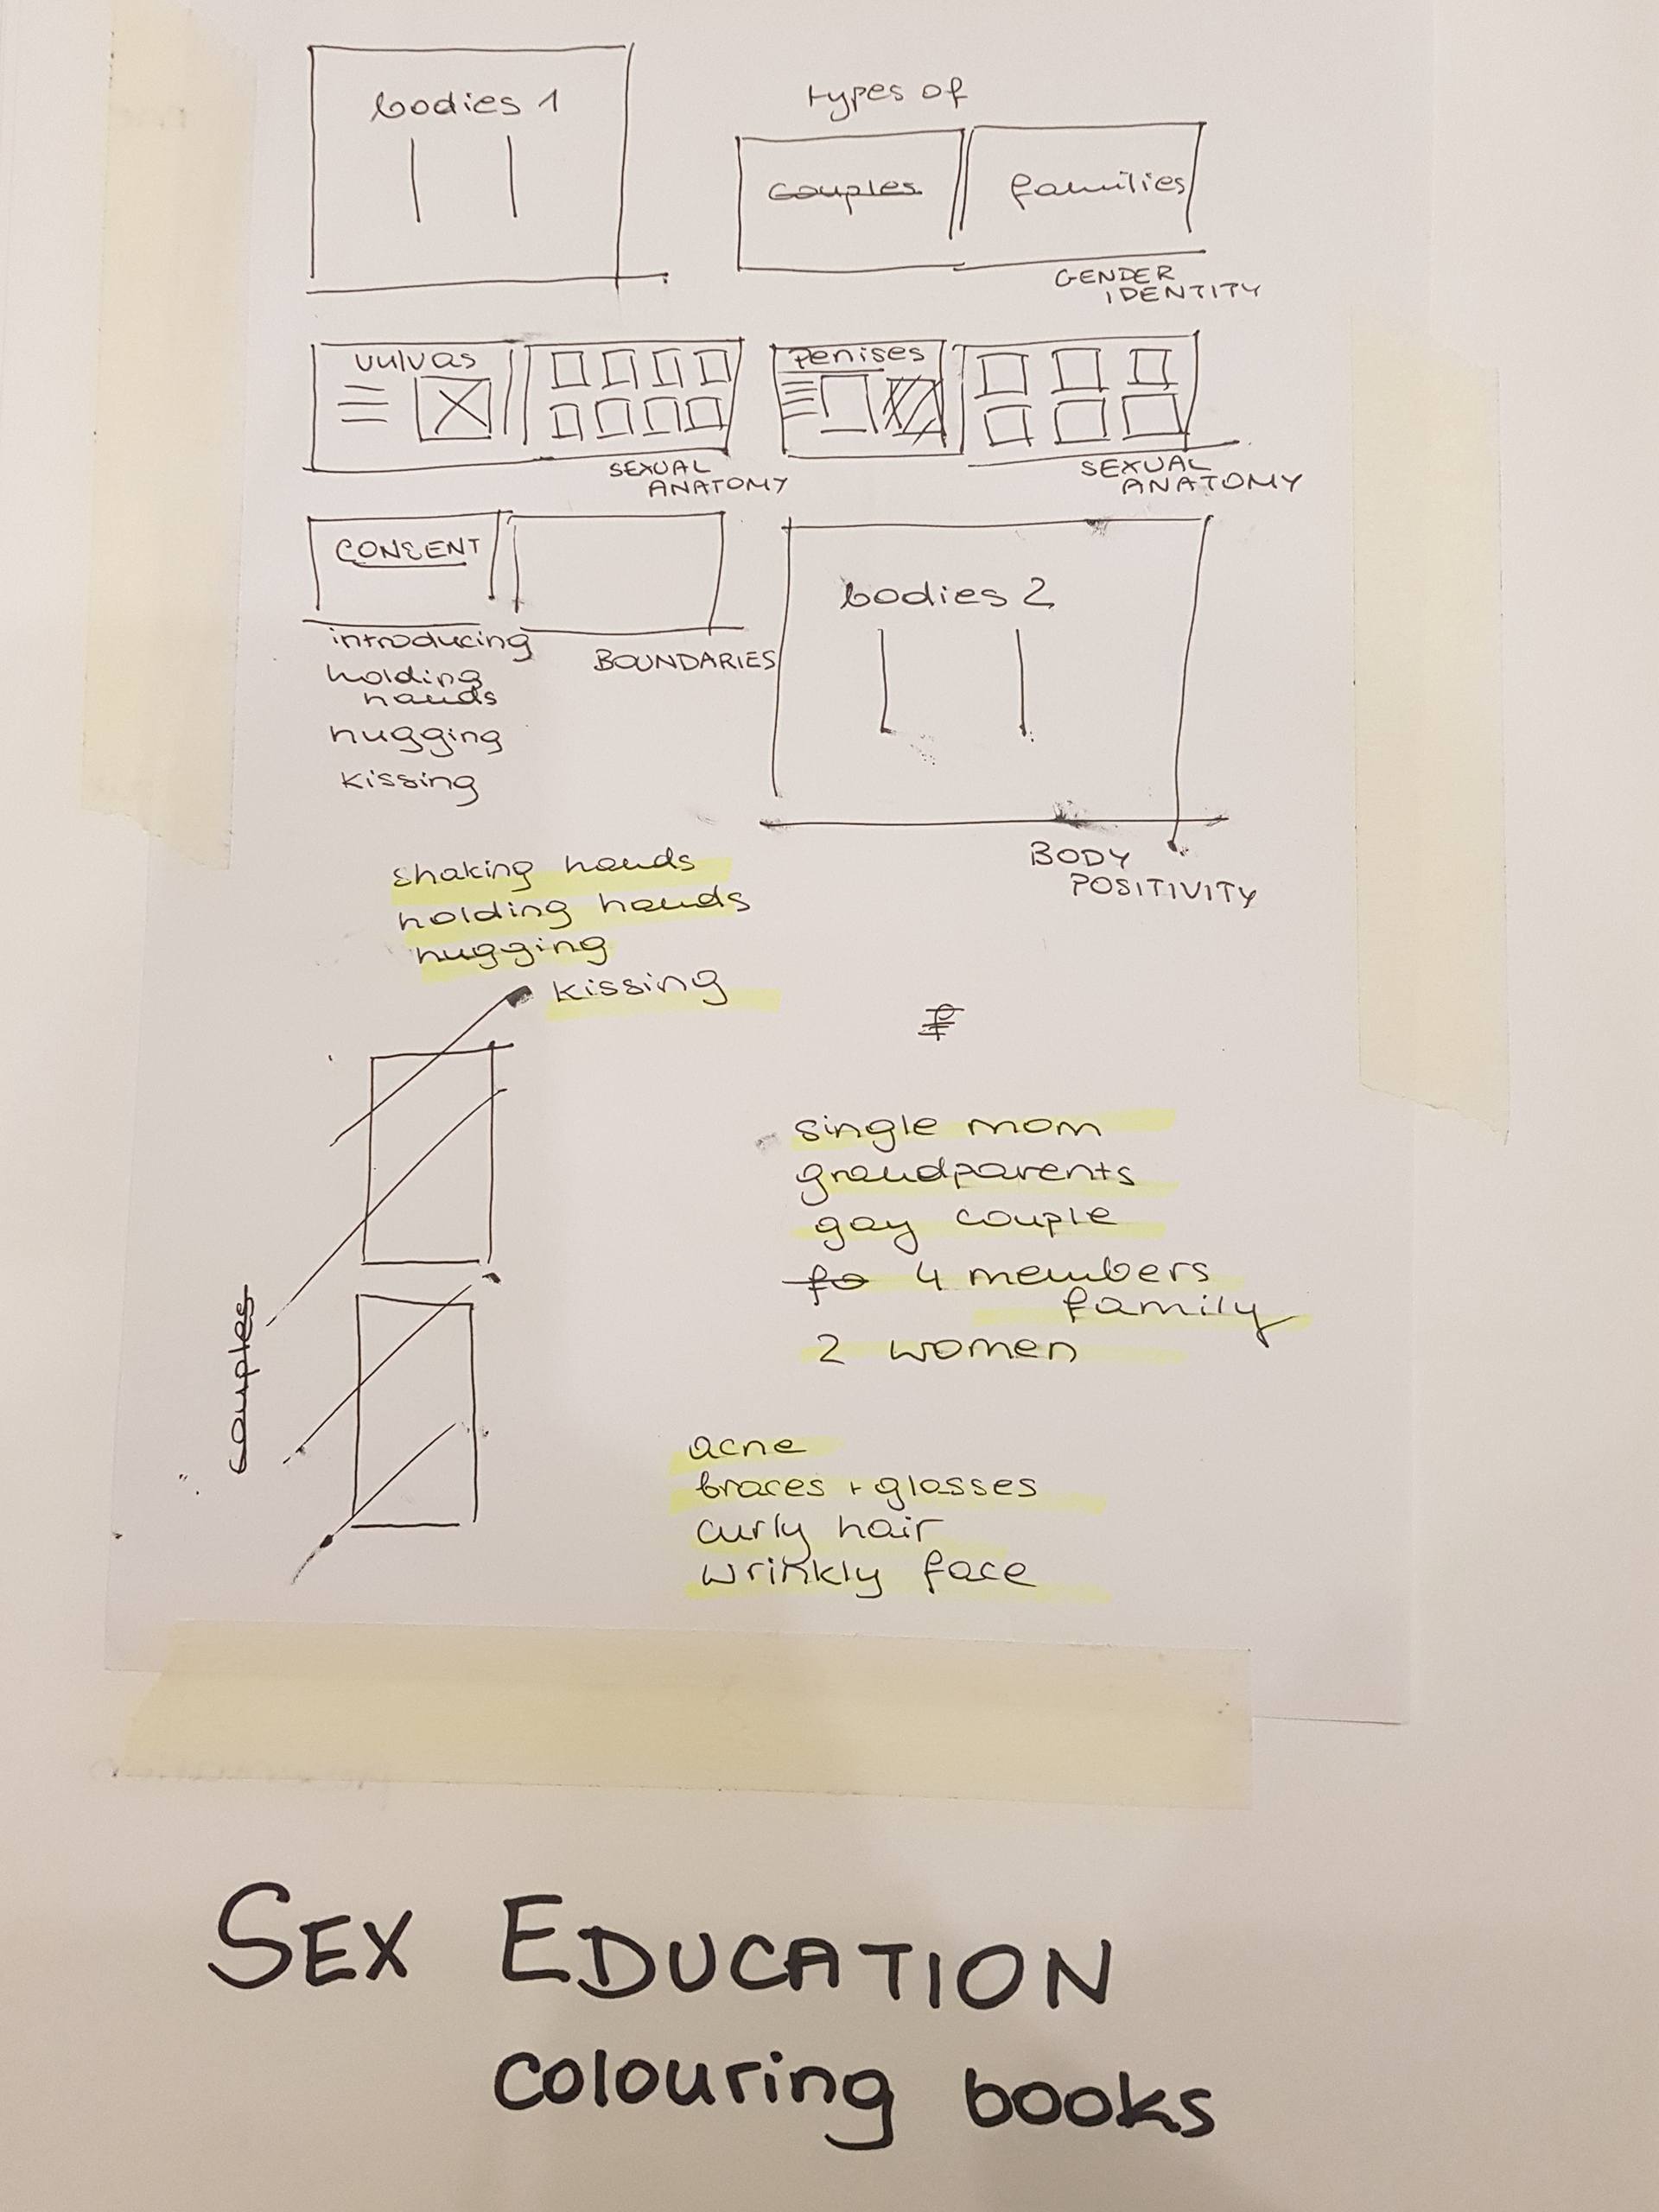 bodies 1
types of
couples
families
GENDER
IDENTITY
vulvas
penises
SEXUAL
ANATOMY
SEXUAL
ANATOMY
CONSENT
introducing
holding
hands
hugging
kissing
BOUNDARIES
bodies 2
BODY
POSITIVITY
shaking hands
holding hands
hugging
kissing
couples
single mom
grandparents
gay couple
fo 4 members
family
2 women
acne
braces + glasses
curly hair
wrinkly face
SEX EDUCATION
colouring books